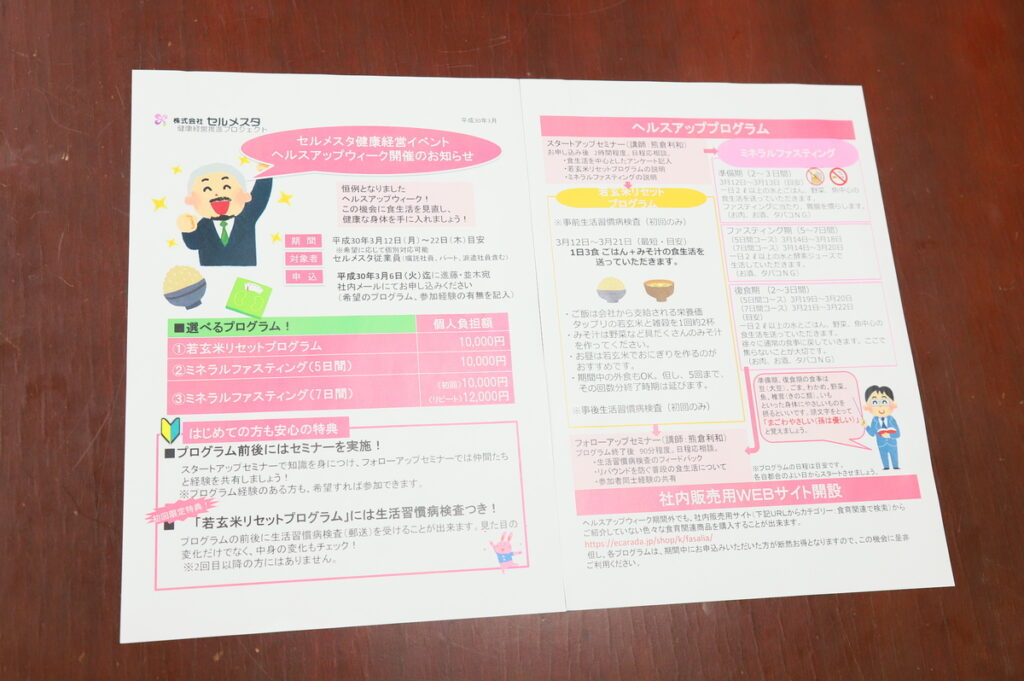 株式会社 セルメスタ
健康経営推進プロジェクト
平成30年3月
セルメスタ健康経営イベント
ヘルスアップウィーク開催のお知らせ
恒例となりました
ヘルスアップウィーク!
この機会に食生活を見直し、
健康な身体を手に入れましょう!
期間 平成30年3月12日(月)~22日(木)目安
※希望に応じて個別対応可能
対象者 セルメスタ従業員(嘱託社員、パート、派遣社員含む)
申込 平成30年3月6日(火)迄に進藤・並木宛
社内メールにてお申し込みください
(希望のプログラム、参加経験の有無を記入)
■選べるプログラム! 個人負担額
①若玄米リセットプログラム 10,000円
②ミネラルファスティング(5日間) 10,000円
③ミネラルファスティング(7日間) (初回)10,000円
(リピート)12,000円
はじめての方も安心の特典
■プログラム前後にはセミナーを実施!
スタートアップセミナーで知識を身につけ、フォローアップセミナーでは仲間たち
と経験を共有しましょう!
※プログラム経験のある方も、希望すれば参加できます。
初回限定特典!
■「若玄米リセットプログラム」には生活習慣病検査つき!
プログラムの前後に生活習慣病検査(郵送)を受けることが出来ます。見た目の
変化だけでなく、中身の変化もチェック!
※2回目以降の方にはありません。
ヘルスアッププログラム
スタートアップセミナー(講師:熊倉利和)
お申し込み後 2時間程度、日程応相談。
・食生活を中心としたアンケート記入
・若玄米リセットプログラムの説明
・ミネラルファスティングの説明
若玄米リセット
プログラム
※事前生活習慣病検査(初回のみ)
3月12日~3月21日(最短・目安)
1日3食 ごはん+みそ汁の食生活を
送っていただきます。
・ご飯は会社から支給される栄養価
タップリの若玄米と雑穀を1回約2杯
・みそ汁は野菜など具だくさんのみそ汁
を作ってください。
・お昼は若玄米でおにぎりを作るのが
おすすめです。
・期間中の外食もOK。但し、5回まで、
その回数分終了時期は延びます。
※事後生活習慣病検査(初回のみ)
フォローアップセミナー(講師:熊倉利和)
プログラム終了後 90分程度、日程応相談。
・生活習慣病検査のフィードバック
・リバウンドを防ぐ普段の食生活について
・参加者同士経験の共有
ミネラルファスティング
準備期(2~3日間)
3月12日~3月13日(目安)
一日2ℓ以上の水とごはん、野菜、魚中心の
食生活を送っていきます。
ファスティングに当たり、胃腸を慣らします。
(お肉、お酒、タバコNG)
ファスティング期(5~7日間)
(5日間コース)3月14日~3月18日
(7日間コース)3月14日~3月20日
一日2ℓ以上の水と酵素ジュースで
生活していきます。
(お酒、タバコNG)
復食期(2~3日間)
(5日間コース)3月19日~3月20日
(7日間コース)3月21日~3月22日
(目安)
一日2ℓ以上の水とごはん、野菜、魚中心の
食生活を送っていきます。
徐々に通常の食事に戻していきます。ここで
焦らないことが大切です。
(お肉、お酒、タバコNG)
準備期、復食期の食事は
豆(大豆)、ごま、わかめ、野菜、
魚、椎茸(きのこ類)、いも
といった身体にやさしいものを
摂るといいです。頭文字をとって
「まごわやさしい(孫は優しい)」
と覚えましょう。
※プログラムの日程は目安です。
各自都合のよい日からスタートさせましょう。
社内販売用WEBサイト開設
ヘルスアップウィーク期間外でも、社内販売用サイト(下記URLからカテゴリー:食育関連で検索)から
ご紹介していない色々な食育関連商品を購入することが出来ます。
https://ecarada.jp/shop/k/fasalia/
但し、各プログラムは、期間中にお申込みいただいた方が断然お得となりますので、この機会に是非
ご利用ください。